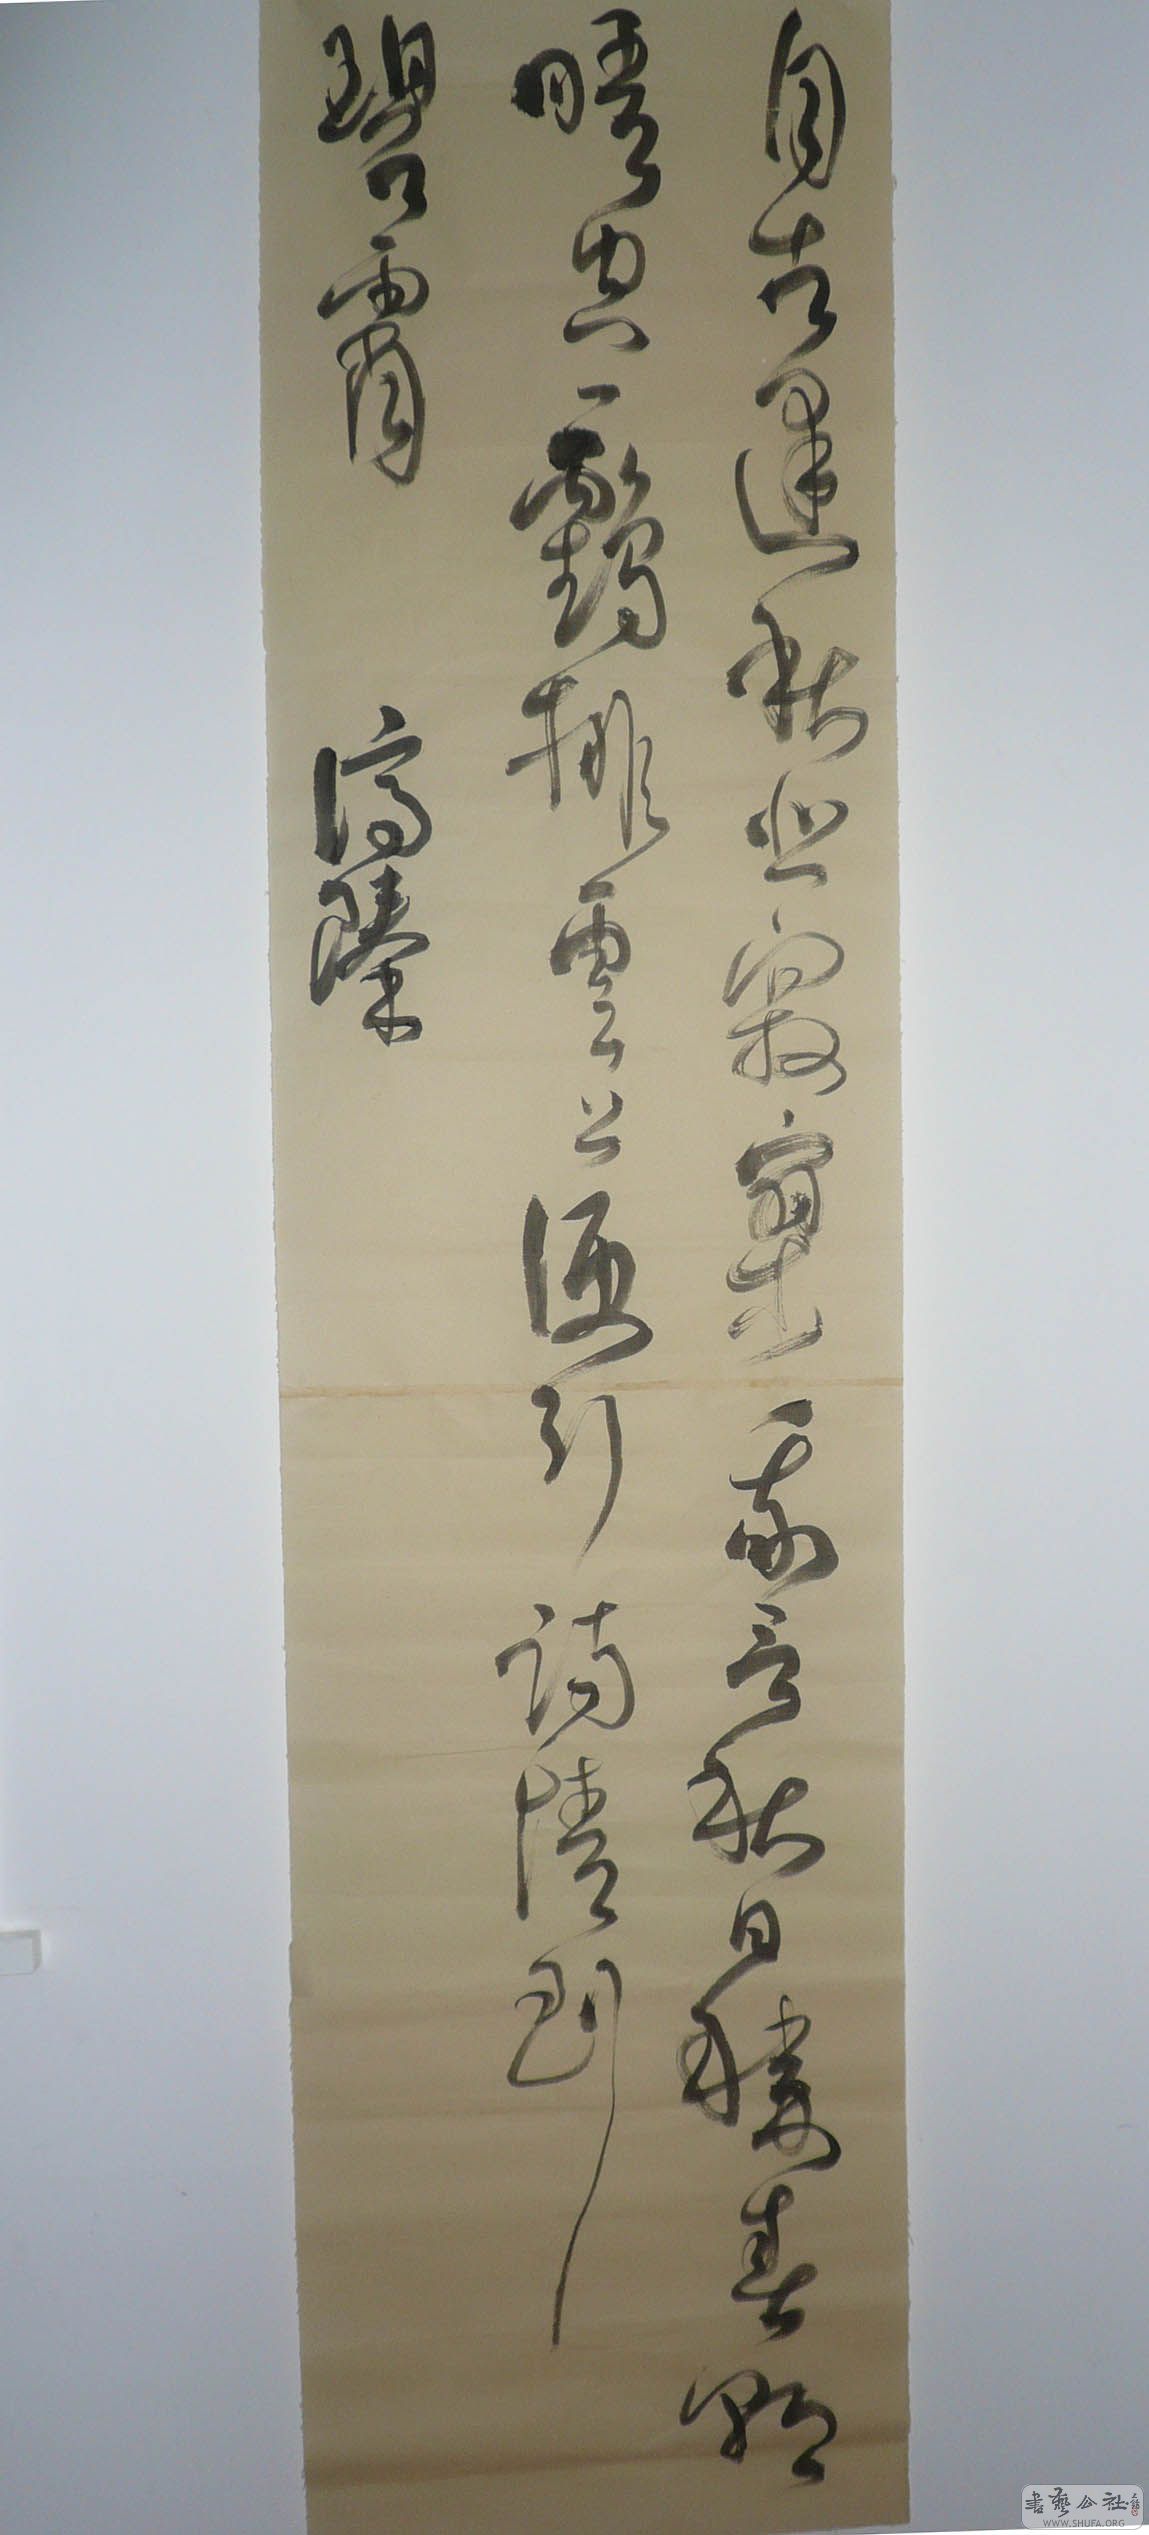 自古逢秋悲寂寥我言秋日勝春朝
晴空一鶴排雲上便引詩情到
碧霄
書藝公社
WWW.SHUFA.ORG